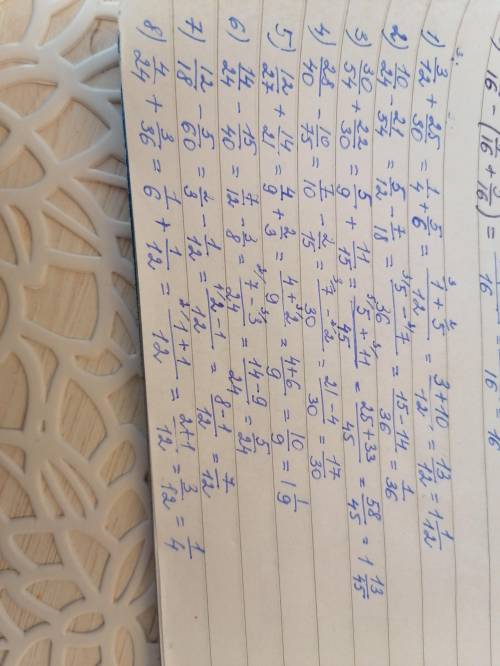 16 - (1/16 + 3/16) = /16 = 16 = 16
1) 3/12 + 25/30 = 1/4 + 5/6 = (³1 + ²5)/12 = (3+10)/12 = 13/12 = 1 1/12
2) 10/24 - 21/54 = 5/12 - 7/18 = (³5 - ²7)/36 = (15-14)/36 = 1/36
3) 30/54 + 22/30 = 5/9 + 11/15 = (⁵5 + ³11)/45 = (25+33)/45 = 58/45 = 1 13/45
4) 28/40 - 10/75 = 7/10 - 2/15 = (³7 - ²2)/30 = (21-4)/30 = 17/30
5) 12/27 + 14/21 = 4/9 + 2/3 = (4+³2)/9 = (4+6)/9 = 10/9 = 1 1/9
6) 14/24 - 15/40 = 7/12 - 3/8 = (²7 - ³3)/24 = (14-9)/24 = 5/24
7) 12/18 - 5/60 = 2/3 - 1/12 = (2-1)/12 = (8-1)/12 = 7/12
8) 4/24 + 3/36 = 1/6 + 1/12 = (²1+1)/12 = (2+1)/12 = 3/12 = 1/4